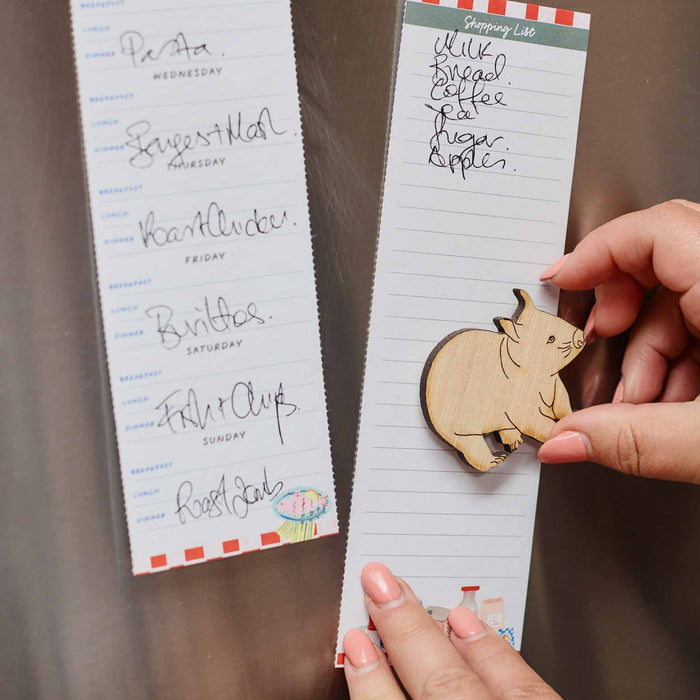 BREAKFAST
DINNER Pasta.
WEDNESDAY
BREAKFAST
LUNCH
DINNER Banges + Mash
THURSDAY
BREAKFAST
LUNCH
DINNER Roast Chicken.
FRIDAY
BREAKFAST
LUNCH
DINNER Burittos.
SATURDAY
BREAKFAST
LUNCH
DINNER Fish + Chips
SUNDAY
BREAKFAST
LUNCH
DINNER Roast Lamb
Shopping List
Milk
Bread.
Coffee
Tea
Sugar.
Apples.